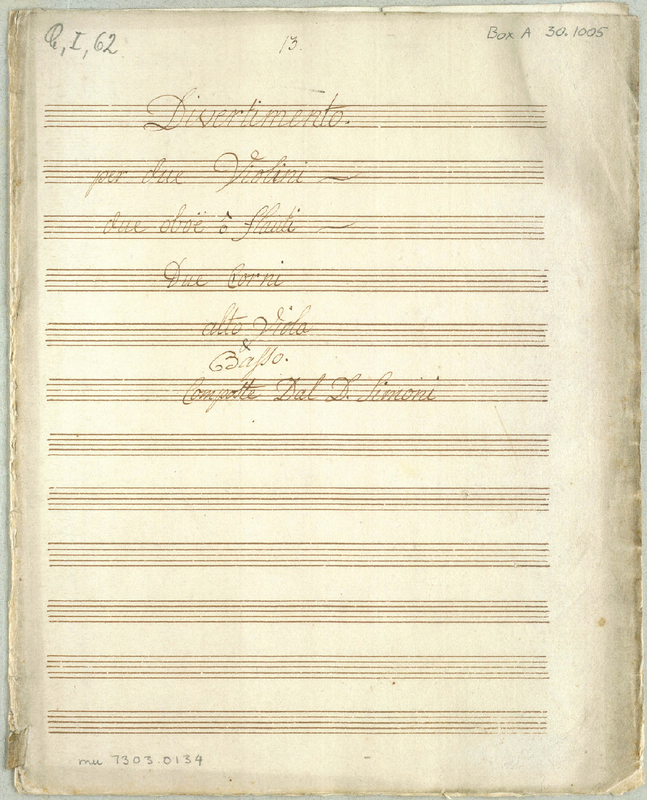 R, I, 62
13.
Box A 30.1005
Divertimento.
per due Violini
due oboe ò flauti
Due Corni
alto Viola
&
Basso.
Composte Dal D. Simoni
mu 7303.0134